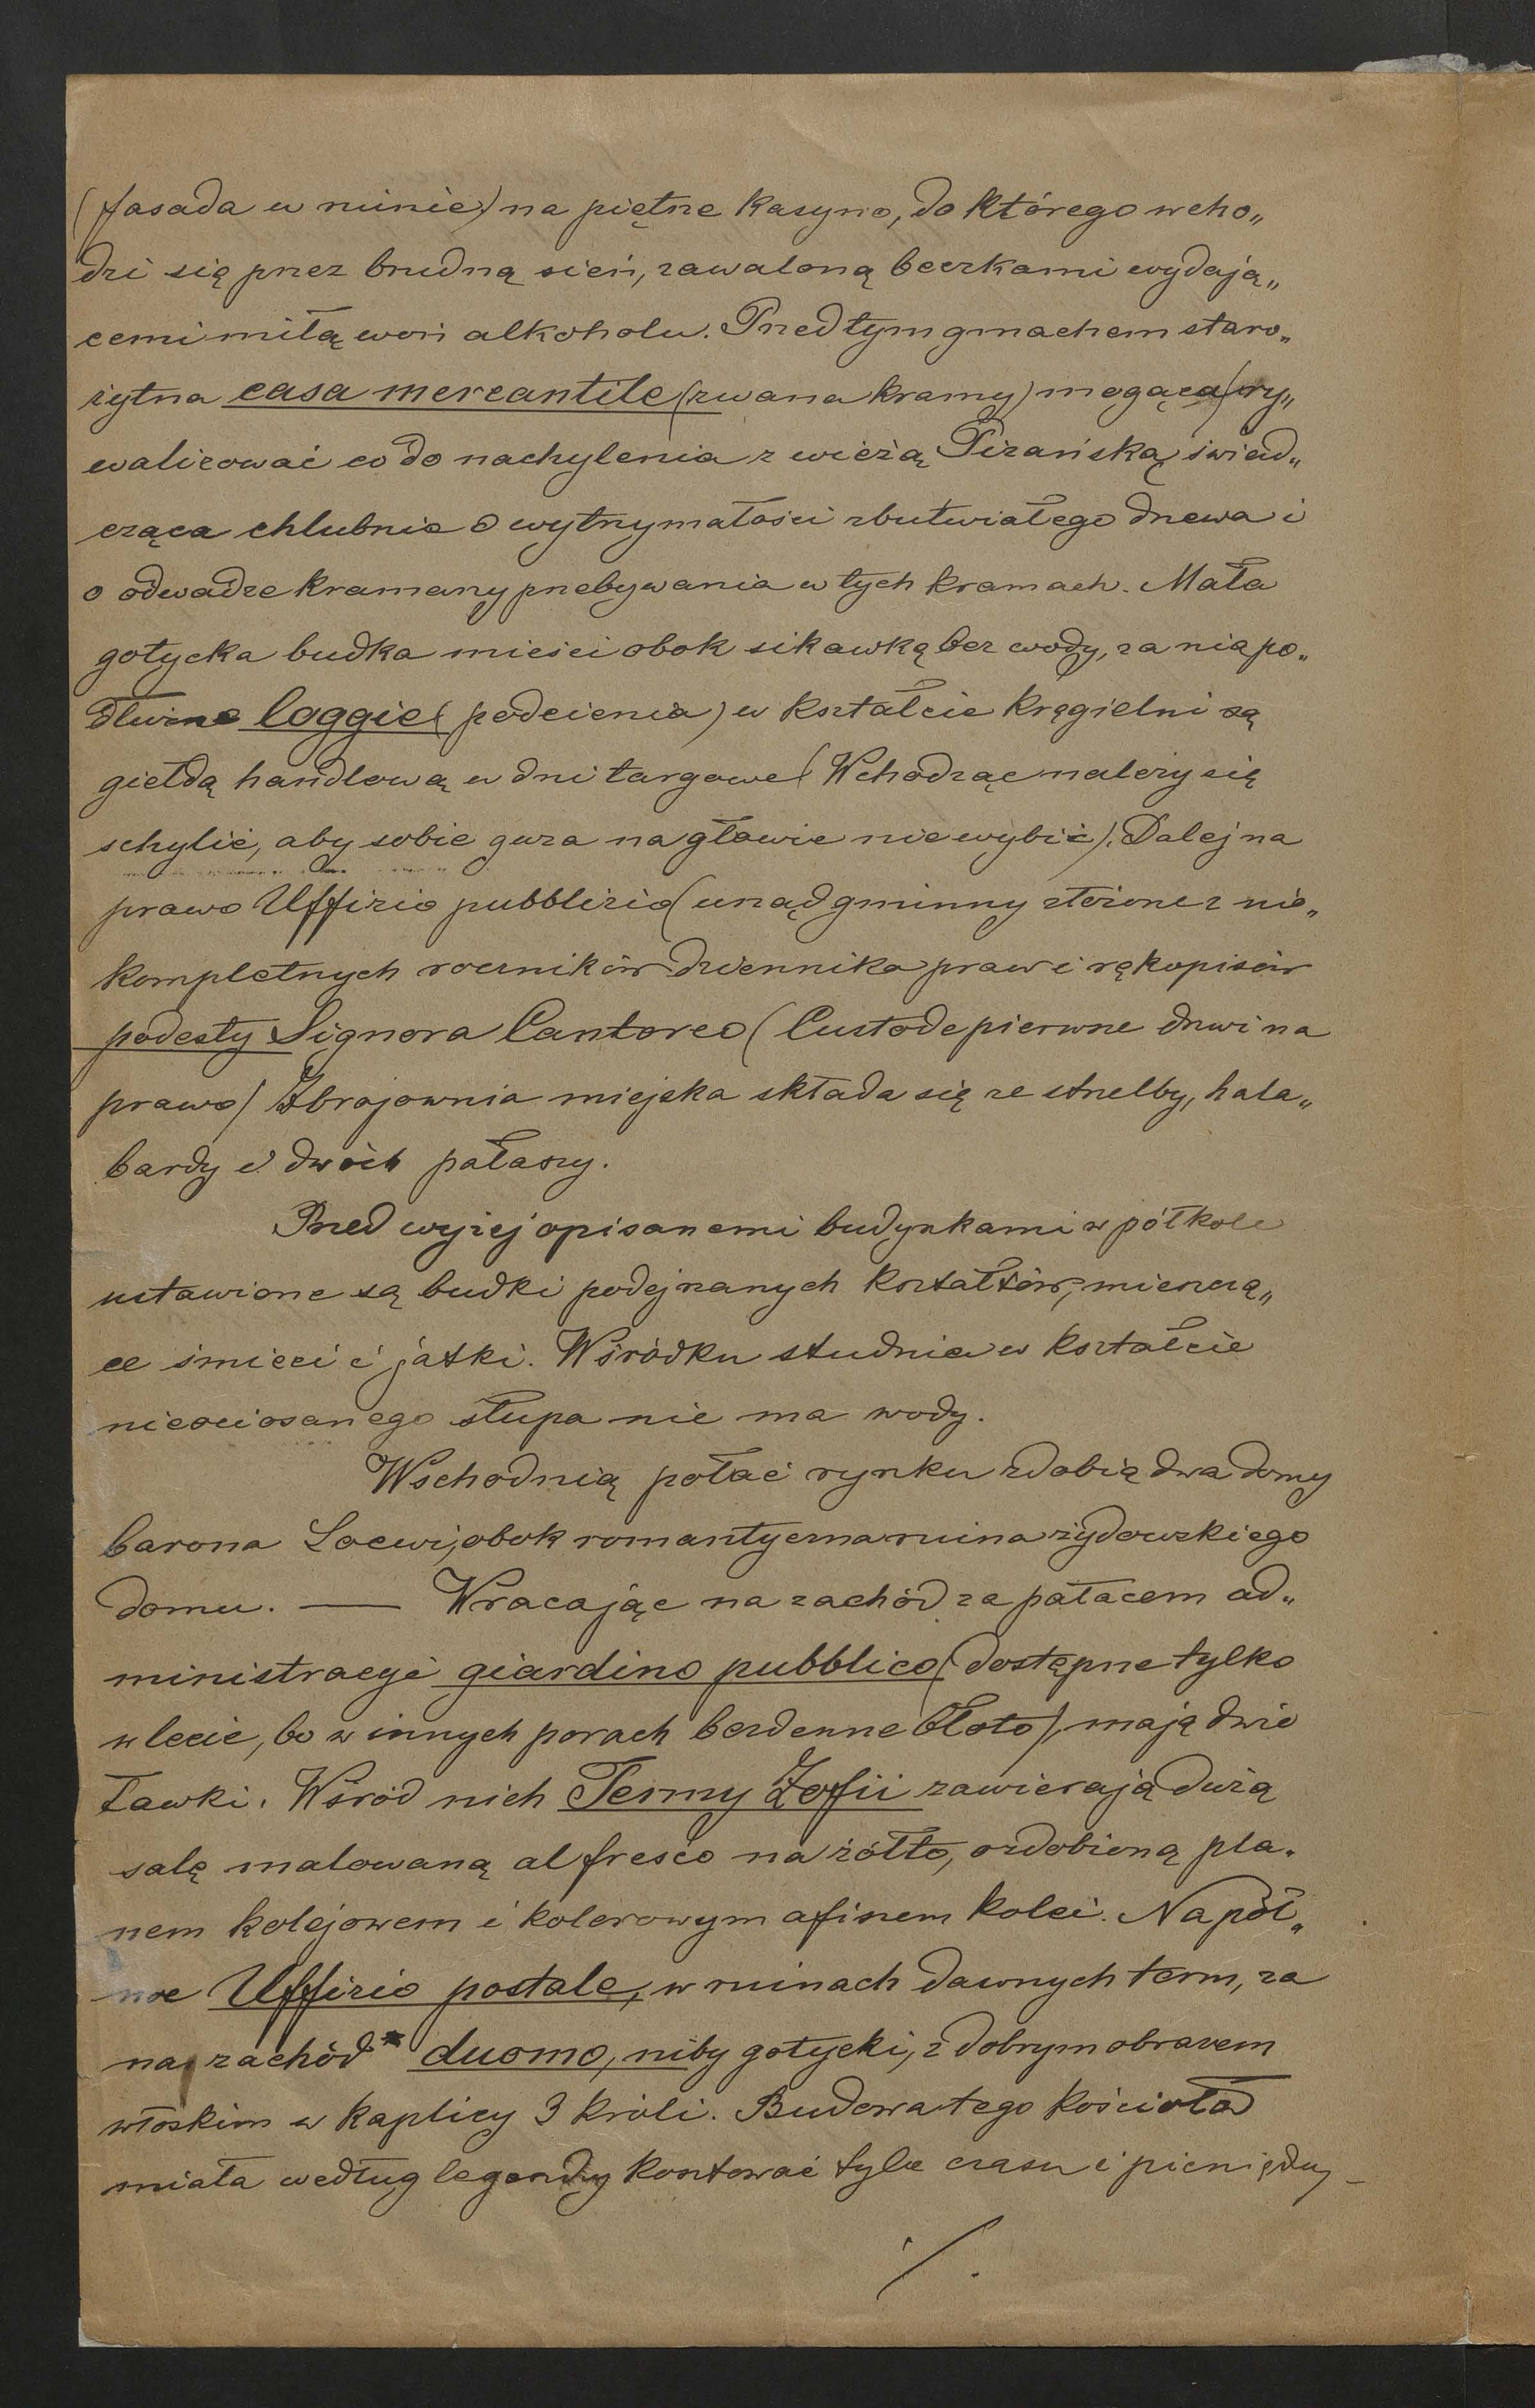 (fasada w ruinie) na piętrze kasyno, do którego wcho„
dzi się przez brudną sień, zawaloną beczkami wydają„
cemi miłą woń alkoholu. Przed tym gmachem staro„
żytna casa mercantile (zwana kramy) mogąca ry„
walizować co do nachylenia z wieżą Pizańską, świad„
cząca chlubnie o wytrzymałości zbutwiałego drzewa i
o odwadze kramarzy przebywania w tych kramach. Mała
gotycka budka mieści obok sikawkę bez wody, za nią po„
dłużne loggie (podcienia) w kształcie kręgielni są
giełdą handlową w dni targowe (Wchodząc należy się
schylić, aby sobie guza na głowie nie wybić). Dalej na
prawo Uffizio pubblizio (urząd gminny złożone z nie„
kompletnych roczników dziennika praw i rękopisów
podesty Signora Cantoreo (Custode pierwsze drzwi na
prawo) Zbrojownia miejska składa się ze strzelby, hala„
bardy i dwóch pałaszy.
Przed wyżej opisanemi budynkami w półkole
ustawione są budki podejrzanych kształtów, mieszczą„
ce śmieci i jatki. W śródku studnia w kształcie
nieociosanego słupa nie ma wody.
Wschodnią połać rynku zdobią dwa domy
barona Loewi, obok romantyczna ruina żydowskiego
domu. — Wracając na zachód za pałacem ad„
ministracyi giardino pubblico (dostępne tylko
w lecie, bo w innych porach bezdenne błoto) mają dwie
ławki. Wśród nich Termy Zofii zawierają dużą
salę malowaną al fresco na żółto, ozdobioną pla„
nem kolejowem i kolorowym afiszem kolei. Na pół„
noc Uffizio postale, w ruinach dawnych term, za
na zachód* duomo, niby gotycki, z dobrym obrazem
włoskim w kaplicy 3 króli. Budowa tego kościoła
miała według legendy kosztować tyle czasu i pieniędzy –
./.